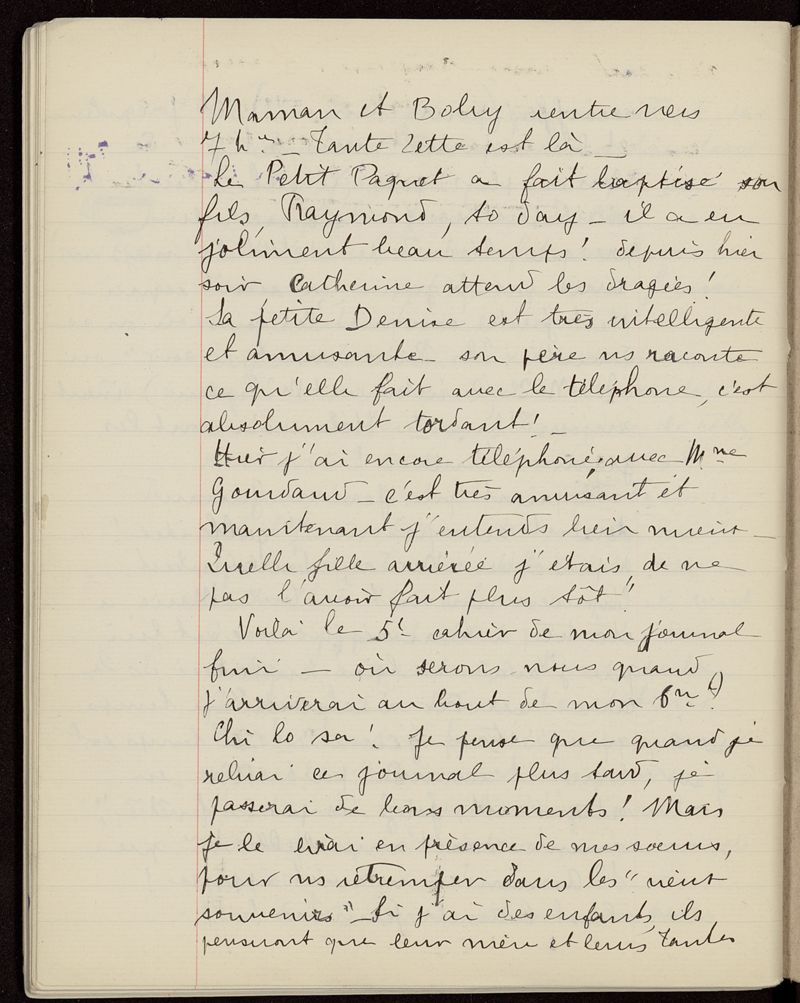 Maman et Bolry rentre vers
7 hres _ Tante Zette est là _
Le Petit Paquet a fait baptisé son
fils, Raymond, to day _ il a eu
joliment beau temps! depuis hier
soir Catherine attend les dragées!
La petite Denise est très intelligente
et amusante _ son père ns raconte
ce qu'elle fait avec le téléphone, c'est
absolument tordant! _
Hier j'ai encore téléphoné avec Mme
Gourdaud _ c'est très amusant et
maintenant j'entends bien mieux _
Quelle fille arriérée j'étais de ne
pas l'avoir fait plus tôt"
Voilà le 5e cahier de mon journal
fini _ où serons nous quand
j'arriverai au bout de mon 6me?
Chi lo sa! Je pense que quand je
relirai ce journal plus tard, je
passerai de bons moments! Mais
je le lirai en présence de mes sœurs,
pour ns retremper dans les "vieux
souvenirs" _ Si j'ai des enfants, ils
penseront que leur mère et leurs tantes